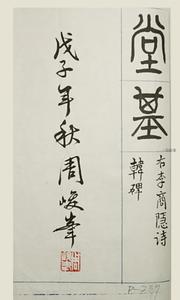 堂基
右李商隐诗
韓碑
戊子年秋周峻峯
P-237